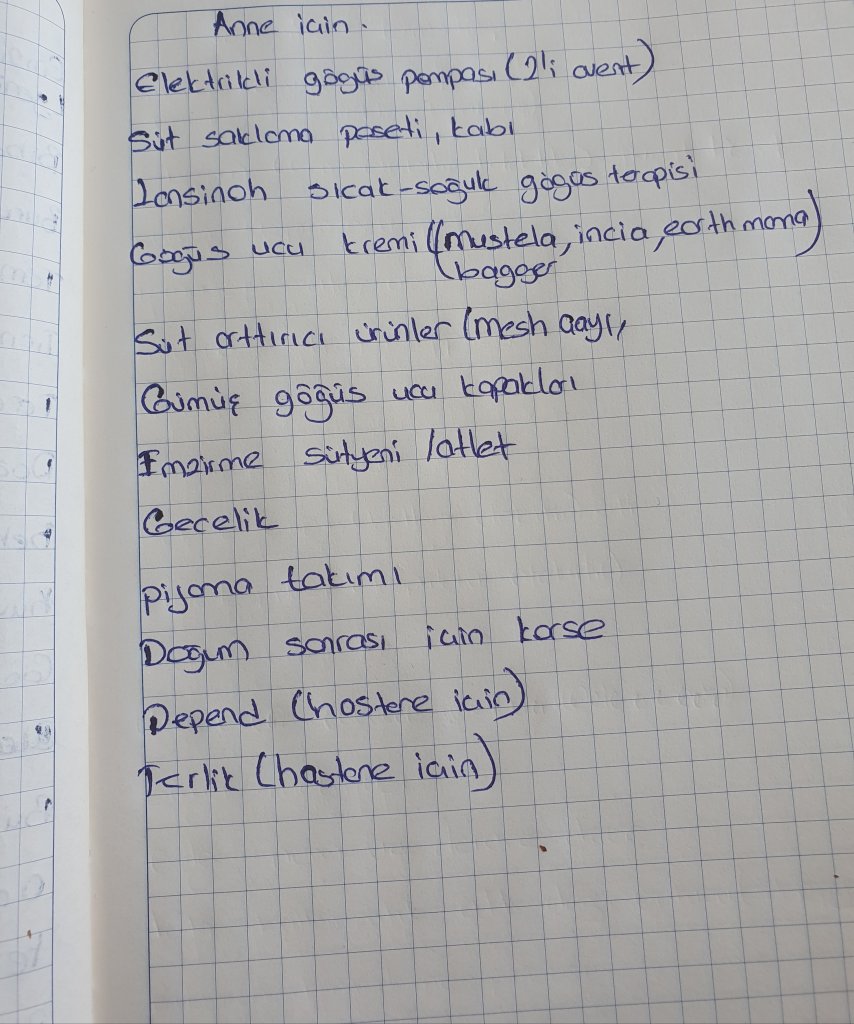 Anne için.
Elektrikli göğüs pompası (2'li avent)
Süt saklama poşeti, kabı
Lansinoh sıcak-soğuk göğüs terapisi
Göğüs ucu kremi (mustela, incia, earth mama)
(bagger
Süt arttırıcı ürünler (mesh
Gümüş göğüs ucu kapakları
Emzirme sütyeni / atlet
Gecelik
Pijama takımı
Doğum sonrası için korse
Depend (hastane için)
Terlik (hastane için)